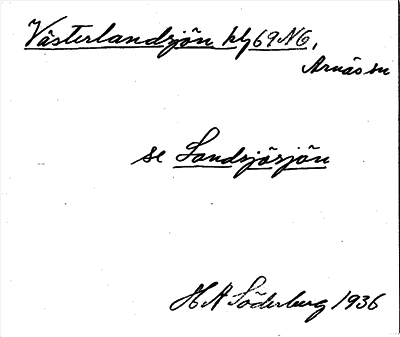 Västerlandsjön klj 69 NO,
Arnäs sn
se Landsjösjön
H A Söderberg 1936